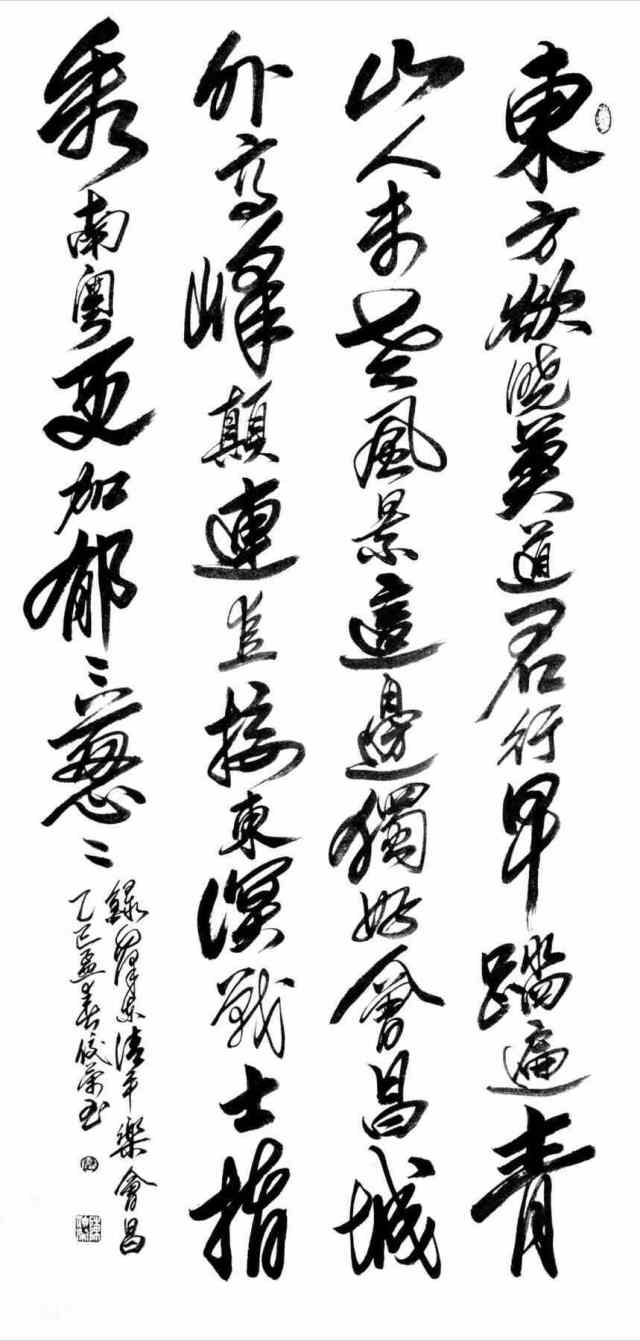 東方欲曉莫道君行早踏遍青
山人未老風景這邊獨好會昌城
外高峰顛連直接東溟戰士指
看南粵更加郁〻葱〻
錄澤東清平樂會昌
乙巳孟春俊榮书